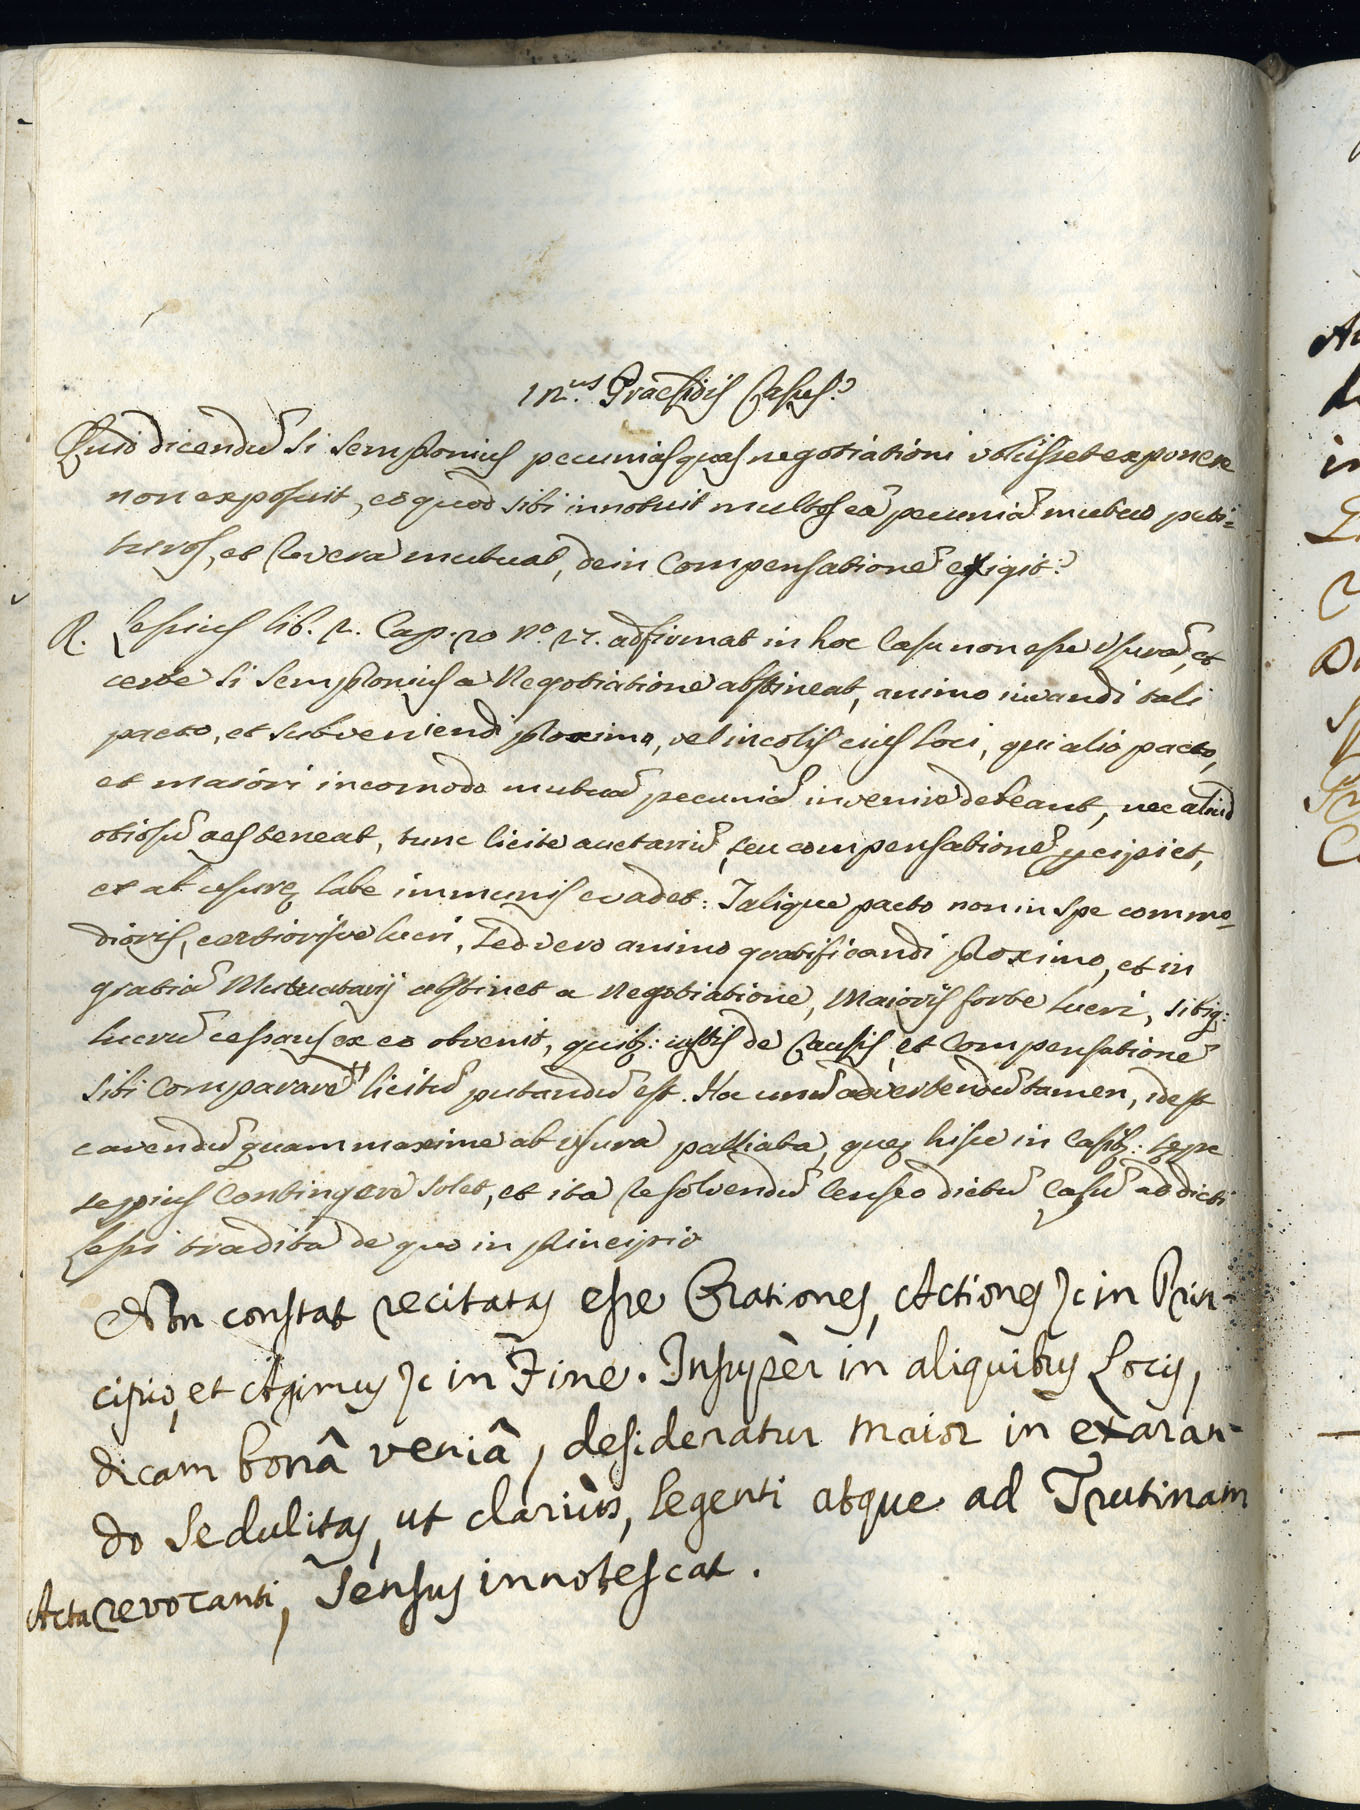 1 12.us Praesidis Casus?
Quid dicendũ si Sempronius pecunias quas negotiationi voluisset exponere
non exposuit, eo quod sibi innotuit multos eã pecuniã mutuo peti=
turos, et revera mutuat, dein Compensationẽ exigit?
R. Lessius lib. 2. Cap. 20 No. 27. adfirmat in hoc Casu non esse Usurã, et
certe si Sempronius a Negotiatione abstineat, animo iuvandi tali
pacto, et subveniendi proximo, vel incolis eius loci, qui alio pacto,
et maiori incomodo mutuã pecuniã invenire debeant, nec aliud
otiosũ aes teneat, tunc licite auctariũ, seu compensationẽ percipiet,
et ab usurę labe immunis evadet: Talique pacto non in spe commo=
dioris, certiorisve lucri, sed vero animo gratificandi proximo, et in
gratiã Mutuatarij abstinet a Negotiatione, Maioris forte lucri, sibiq;
lucrũ cessans ex eo obvenit, quib: iustis de Causis, et Compensationẽ
sibi Comparare licitũ putandũ est. Hoc unũ advertendũ tamen, idest
cavendũ quam maxime ab usura palliata, quę hisce in Casib: sępe
sępius Contingere solet, et ita resolvendũ Censeo dictũ Casũ ad dicti
Lessi tradita de quo in principio
Non constat recitatas esse Orationes, Actiones &c in Prin-
cipio, et Agimus &c in Fine. Insupèr in aliquibus Locis,
dicam bonâ veniâ, desideratur maior in exaran-
do sedulitas, ut clariùs, legenti atque ad Trutinam
Acta revocanti, sensus innotescat.